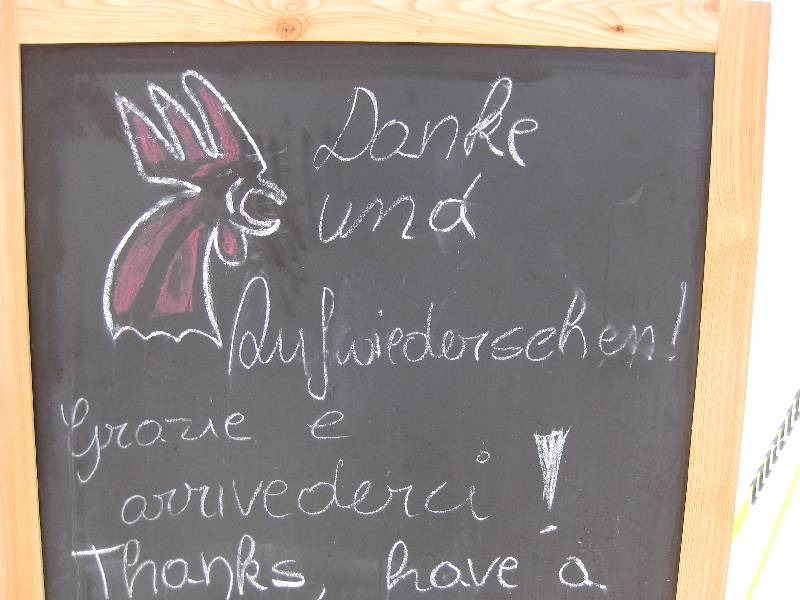 Danke
und
Aufwiedersehen!
Grazie e
arrivederci!
Thanks, have a